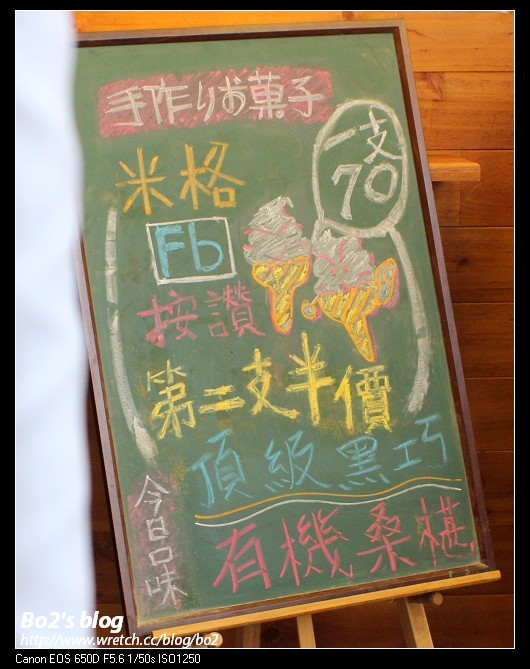 手作りお菓子
一支
70
米格
Fb
按讚
第二支半價
今日口味
頂級黑巧
有機桑椹
Bo2's blog
http://www.wretch.cc/blog/bo2
Canon EOS 650D F5.6 1/50s ISO1250